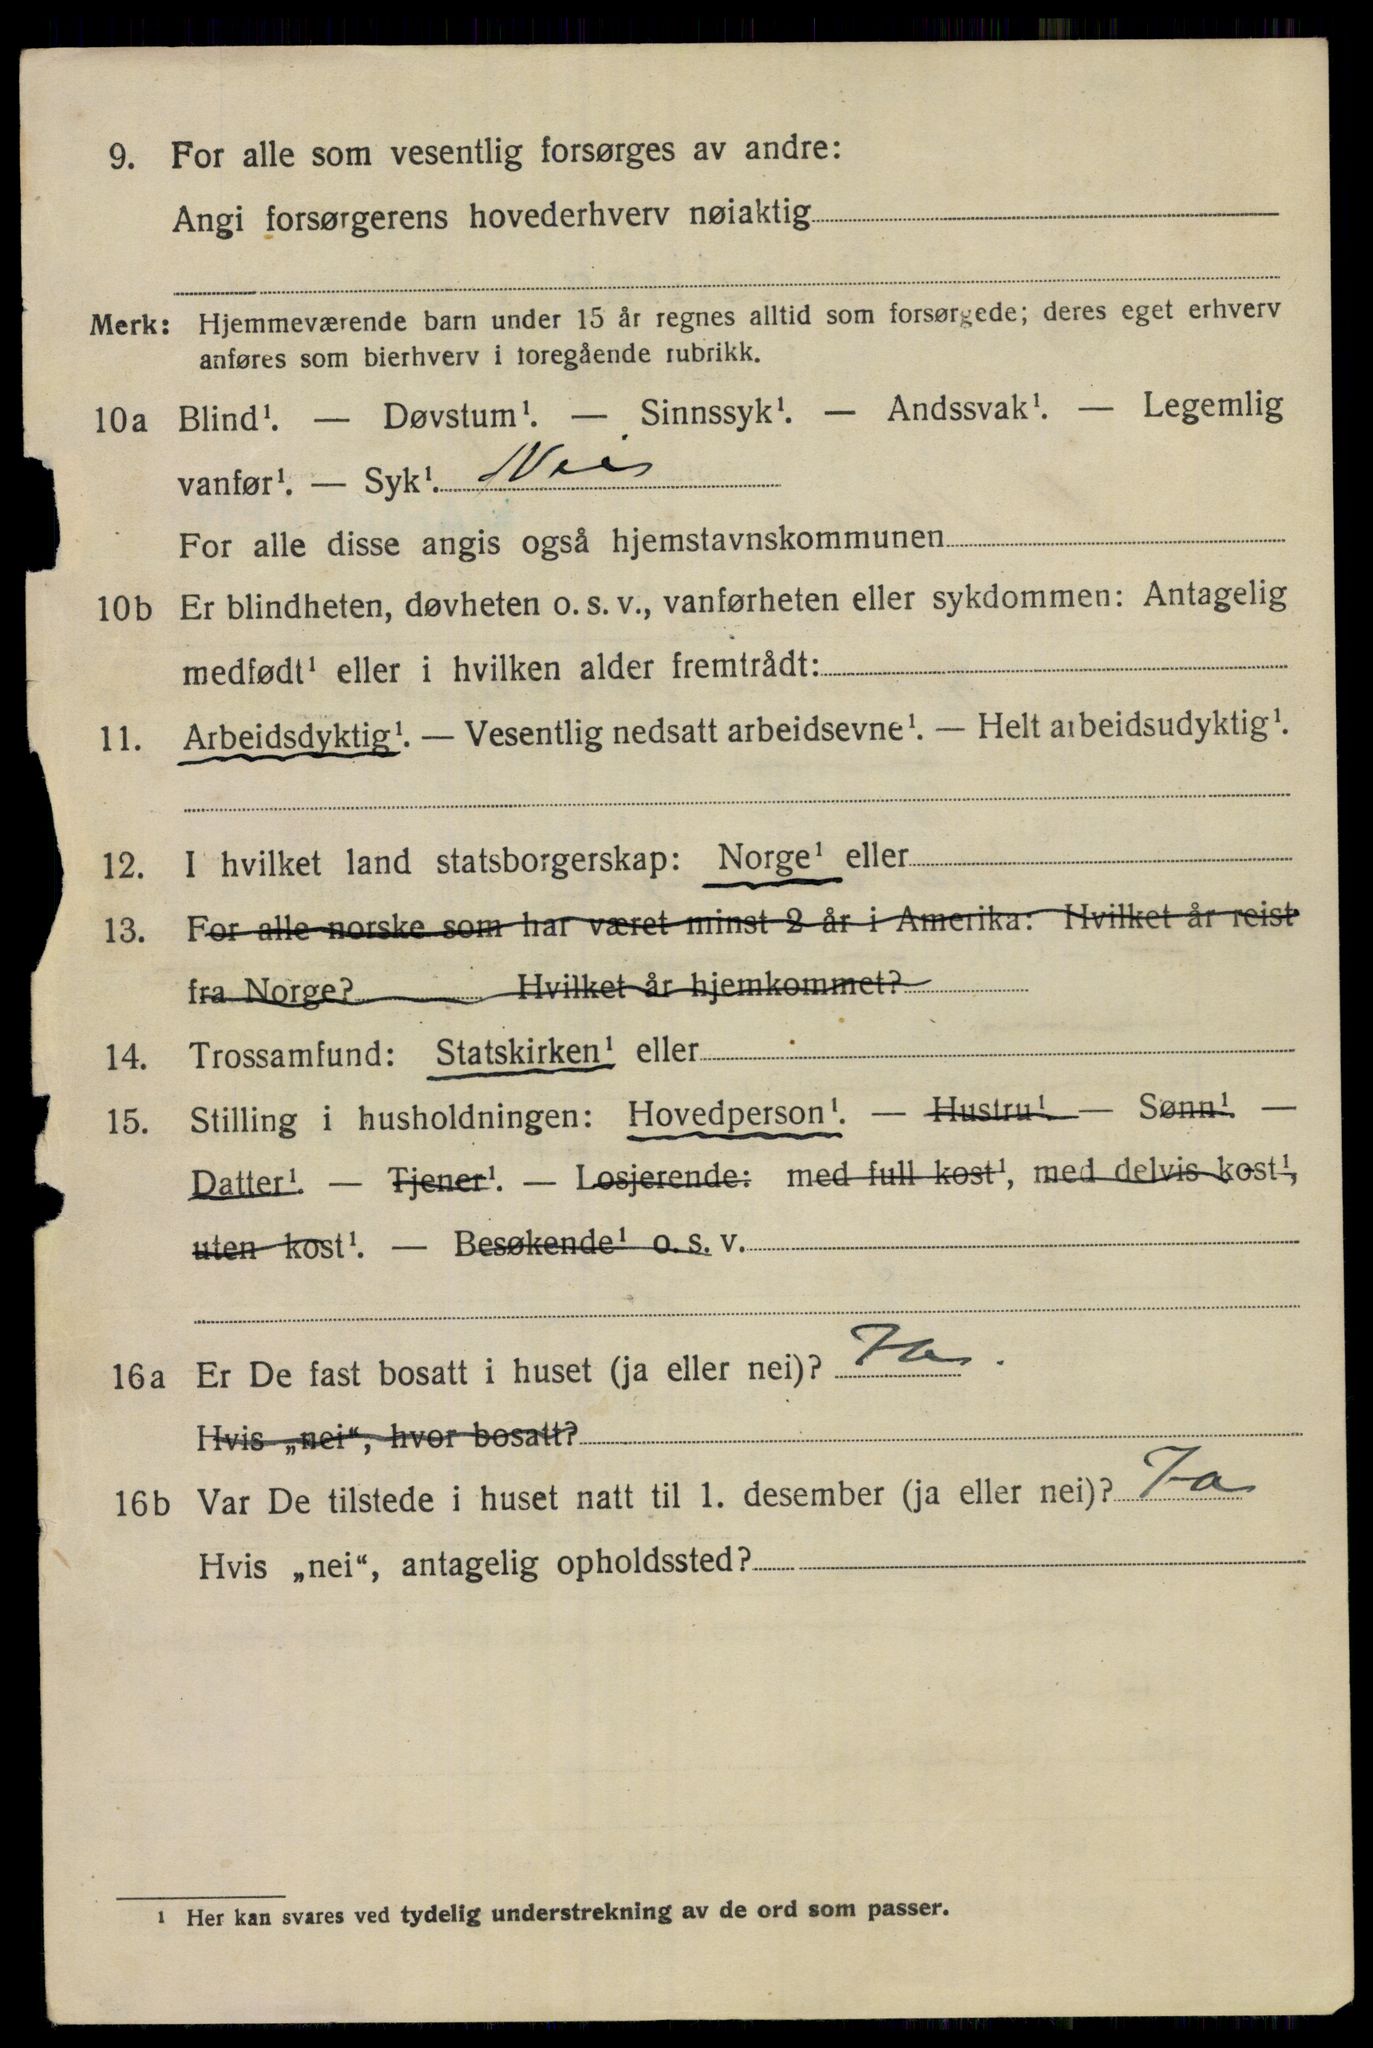 9. For alle som vesentlig forsørges av andre:
Angi forsørgerens hovederhverv nøiaktig
Merk: Hjemmeværende barn under 15 år regnes alltid som forsørgede; deres eget erhverv
anføres som bierhverv i foregående rubrikk.
10a Blind¹. — Døvstum¹. — Sinnssyk¹. — Andssvak¹. — Legemlig
vanfør¹. — Syk¹. Nei
For alle disse angis også hjemstavnskommunen
10b Er blindheten, døvheten o. s. v., vanførheten eller sykdommen: Antagelig
medfødt¹ eller i hvilken alder fremtrådt:
11. Arbeidsdyktig¹. — Vesentlig nedsatt arbeidsevne¹. — Helt arbeidsudyktig¹.
12. I hvilket land statsborgerskap: Norge¹ eller
13. For alle norske som har været minst 2 år i Amerika: Hvilket år reist
fra Norge? Hvilket år hjemkommet?
14. Trossamfund: Statskirken¹ eller
15. Stilling i husholdningen: Hovedperson¹. — Hustru¹. — Sønn¹. —
Datter¹. — Tjener¹. — Losjerende: med full kost¹, med delvis kost¹,
uten kost¹. — Besøkende¹ o. s. v.
16a Er De fast bosatt i huset (ja eller nei)? Ja.
Hvis „nei“, hvor bosatt?
16b Var De tilstede i huset natt til 1. desember (ja eller nei)? Ja
Hvis „nei“, antagelig opholdssted?
¹ Her kan svares ved tydelig understrekning av de ord som passer.